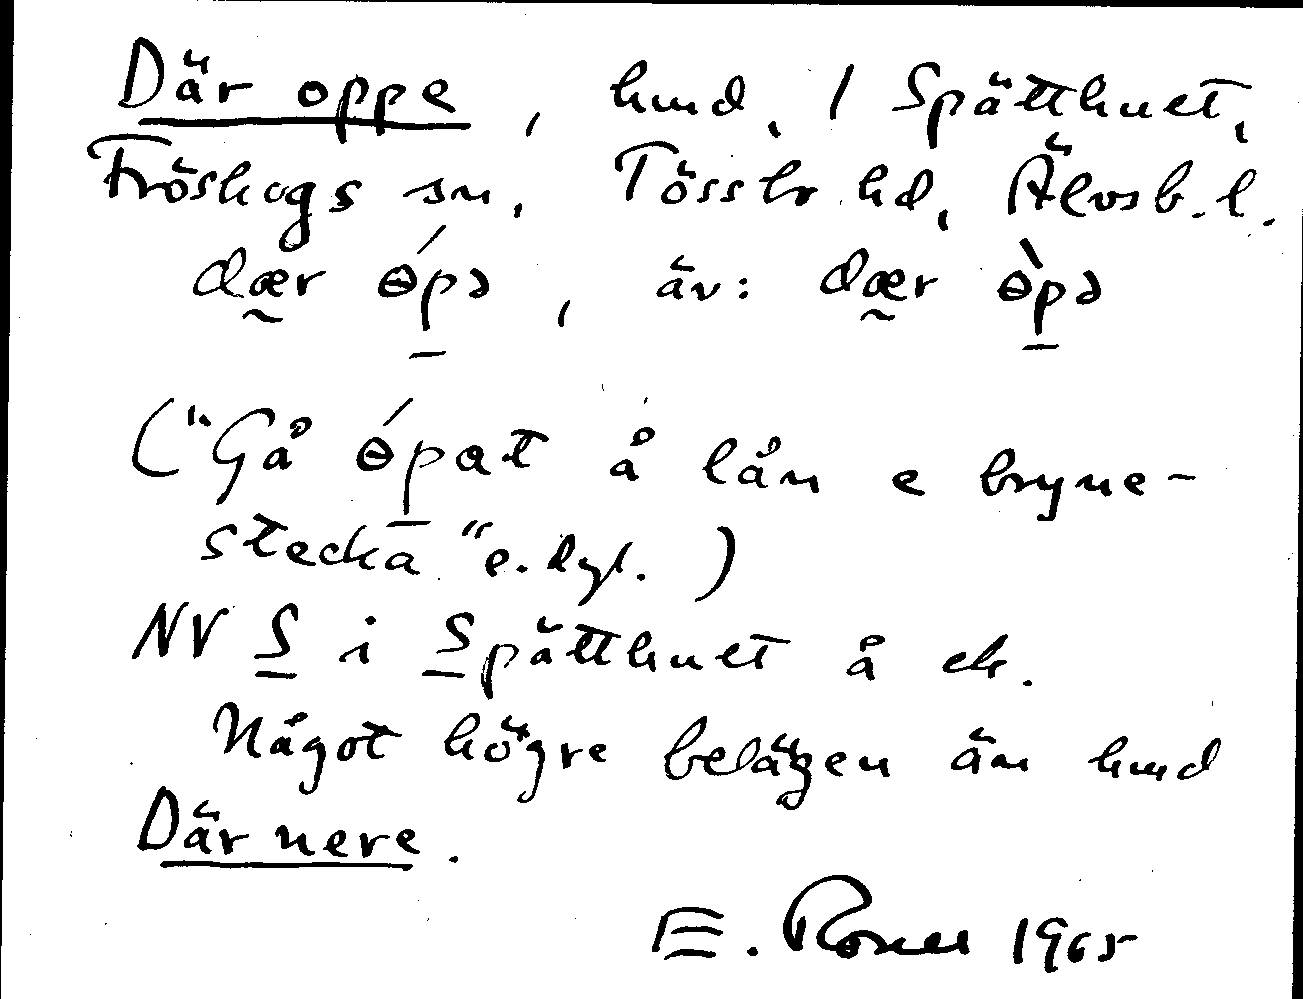 Där oppe, hmd, / Spätthuet,
Fröskogs sn, Tössbo hd, Älvsb. l.
dær ɵ́pə, äv: dær ɵ̀pə
("Gå ɵ́pat å lån e bryne-
stecka" e. dyl.)
NV S i Spätthuet å ek.
Något högre belägen än hmd
Där nere.
E. 1965